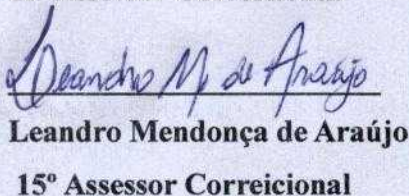 Leandro M de Araújo
Leandro Mendonça de Araújo
15º Assessor Correicional